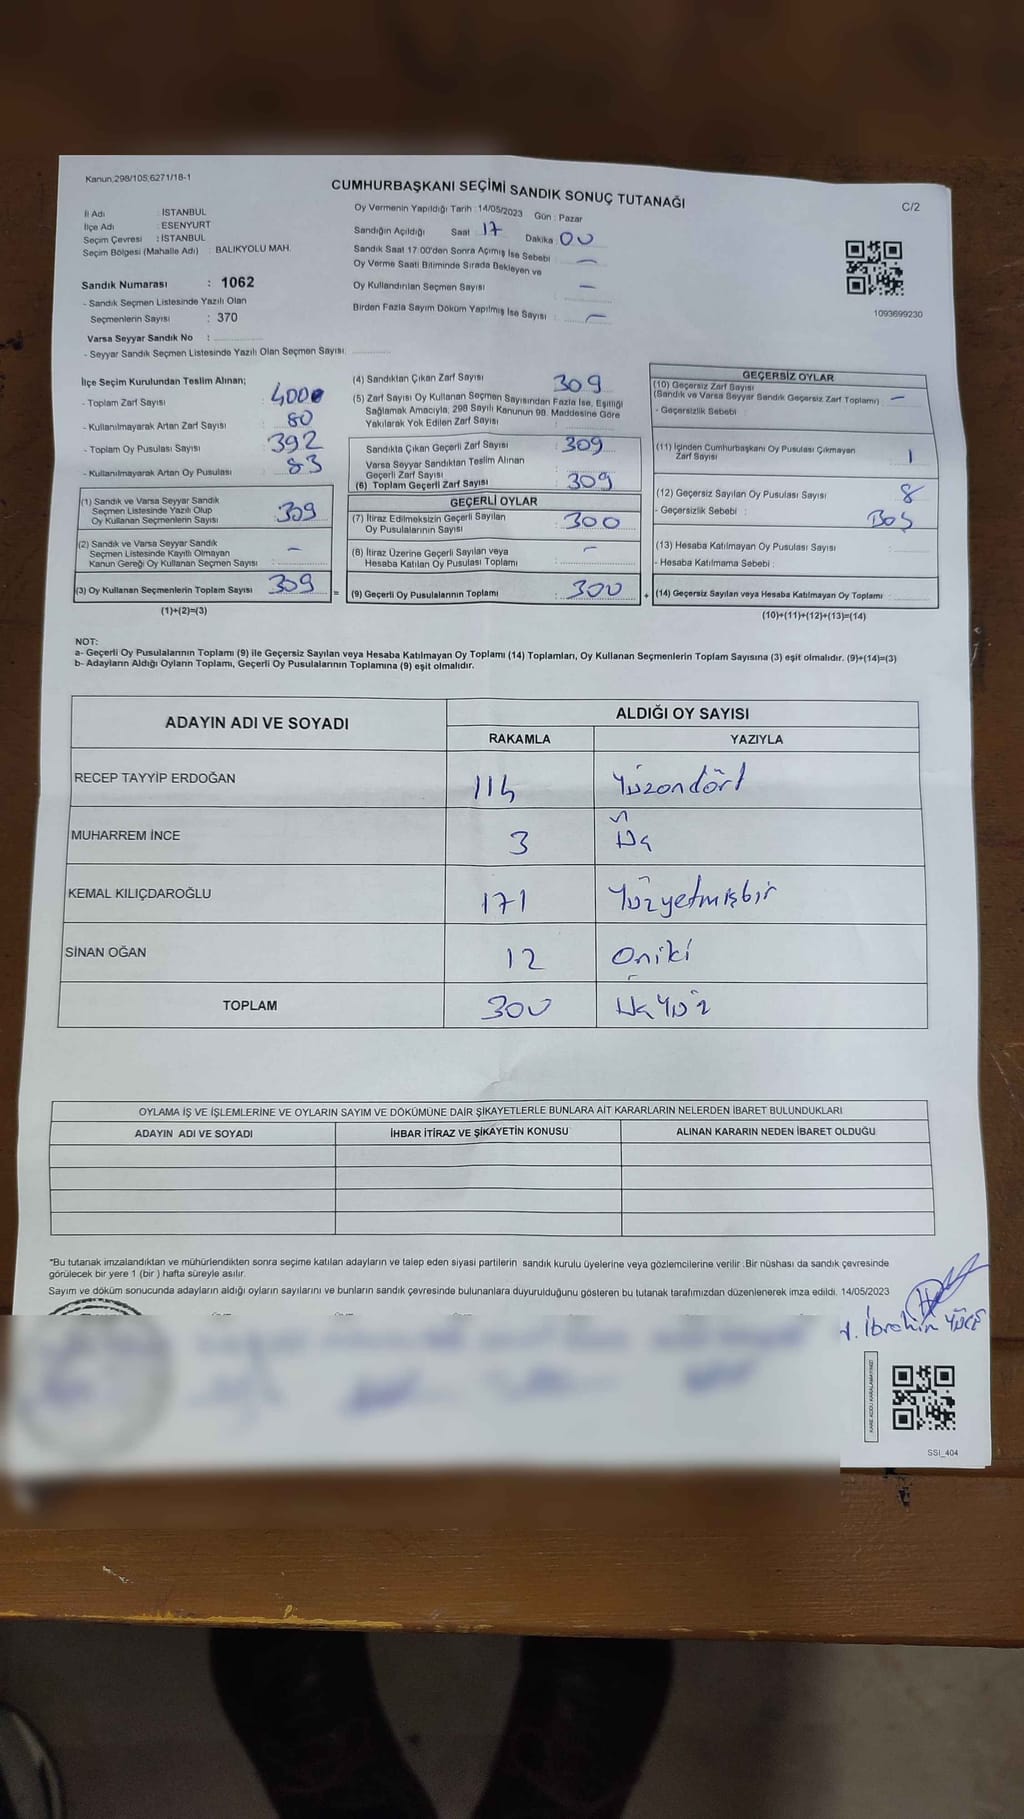 Kanun;298/105;6271/18-1
CUMHURBAŞKANI SEÇİMİ SANDIK SONUÇ TUTANAĞI
C/2
İl Adı : İSTANBUL
İlçe Adı : ESENYURT
Seçim Çevresi : İSTANBUL
Seçim Bölgesi (Mahalle Adı) : BALIKYOLU MAH.
Oy Vermenin Yapıldığı Tarih : 14/05/2023 Gün : Pazar
Sandığın Açıldığı Saat 17 Dakika : 00
Sandık Saat 17:00'den Sonra Açımış İse Sebebi : —
Oy Verme Saati Bitiminde Sırada Bekleyen ve
Oy Kullandırılan Seçmen Sayısı —
Birden Fazla Sayım Döküm Yapılmış İse Sayısı : —
1093699230
Sandık Numarası : 1062
- Sandık Seçmen Listesinde Yazılı Olan
Seçmenlerin Sayısı : 370
Varsa Seyyar Sandık No :
- Seyyar Sandık Seçmen Listesinde Yazılı Olan Seçmen Sayısı:
İlçe Seçim Kurulundan Teslim Alınan;
- Toplam Zarf Sayısı :
- Kullanılmayarak Artan Zarf Sayısı : 80
- Toplam Oy Pusulası Sayısı : 392
- Kullanılmayarak Artan Oy Pusulası : 83
(1) Sandık ve Varsa Seyyar Sandık
Seçmen Listesinde Yazılı Olup
Oy Kullanan Seçmenlerin Sayısı : 309
(2) Sandık ve Varsa Seyyar Sandık
Seçmen Listesinde Kayıtlı Olmayan
Kanun Gereği Oy Kullanan Seçmen Sayısı : —
(3) Oy Kullanan Seçmenlerin Toplam Sayısı : 309 =
(1)+(2)=(3)
(4) Sandıktan Çıkan Zarf Sayısı : 309
(5) Zarf Sayısı Oy Kullanan Seçmen Sayısından Fazla İse, Eşitliği
Sağlamak Amacıyla, 298 Sayılı Kanunun 98. Maddesine Göre
Yakılarak Yok Edilen Zarf Sayısı :
Sandıkta Çıkan Geçerli Zarf Sayısı : 309
Varsa Seyyar Sandıktan Teslim Alınan
Geçerli Zarf Sayısı :
(6) Toplam Geçerli Zarf Sayısı : 309
GEÇERLİ OYLAR
(7) İtiraz Edilmeksizin Geçerli Sayılan
Oy Pusulalarının Sayısı : 300
(8) İtiraz Üzerine Geçerli Sayılan veya
Hesaba Katılan Oy Pusulası Toplamı : —
(9) Geçerli Oy Pusulalarının Toplamı : 300 +
GEÇERSİZ OYLAR
(10) Geçersiz Zarf Sayısı
(Sandık ve Varsa Seyyar Sandık Geçersiz Zarf Toplamı) : —
- Geçersizlik Sebebi :
(11) İçinden Cumhurbaşkanı Oy Pusulası Çıkmayan
Zarf Sayısı : 1
(12) Geçersiz Sayılan Oy Pusulası Sayısı : 8
- Geçersizlik Sebebi : Boş
(13) Hesaba Katılmayan Oy Pusulası Sayısı :
- Hesaba Katılmama Sebebi :
(14) Geçersiz Sayılan veya Hesaba Katılmayan Oy Toplamı :
(10)+(11)+(12)+(13)=(14)
NOT:
a- Geçerli Oy Pusulalarının Toplamı (9) ile Geçersiz Sayılan veya Hesaba Katılmayan Oy Toplamı (14) Toplamları, Oy Kullanan Seçmenlerin Toplam Sayısına (3) eşit olmalıdır. (9)+(14)=(3)
b- Adayların Aldığı Oyların Toplamı, Geçerli Oy Pusulalarının Toplamına (9) eşit olmalıdır.
ADAYIN ADI VE SOYADI ALDIĞI OY SAYISI
RAKAMLA YAZIYLA
RECEP TAYYİP ERDOĞAN 114 Yüzondört
MUHARREM İNCE 3 Üç
KEMAL KILIÇDAROĞLU 171 Yüzyetmişbir
SİNAN OĞAN 12 Oniki
TOPLAM 300 Üçyüz
OYLAMA İŞ VE İŞLEMLERİNE VE OYLARIN SAYIM VE DÖKÜMÜNE DAİR ŞİKAYETLERLE BUNLARA AİT KARARLARIN NELERDEN İBARET BULUNDUKLARI
ADAYIN ADI VE SOYADI İHBAR İTİRAZ VE ŞİKAYETİN KONUSU ALINAN KARARIN NEDEN İBARET OLDUĞU
*Bu tutanak imzalandıktan ve mühürlendikten sonra seçime katılan adayların ve talep eden siyasi partilerin sandık kurulu üyelerine veya gözlemcilerine verilir .Bir nüshası da sandık çevresinde
görülecek bir yere 1 (bir ) hafta süreyle asılır.
Sayım ve döküm sonucunda adayların aldığı oyların sayılarını ve bunların sandık çevresinde bulunanlara duyurulduğunu gösteren bu tutanak tarafımızdan düzenlenerek imza edildi. 14/05/2023
İbrahim YÜCE
KARE KODU KARALAMAYINIZ!
SSI_404